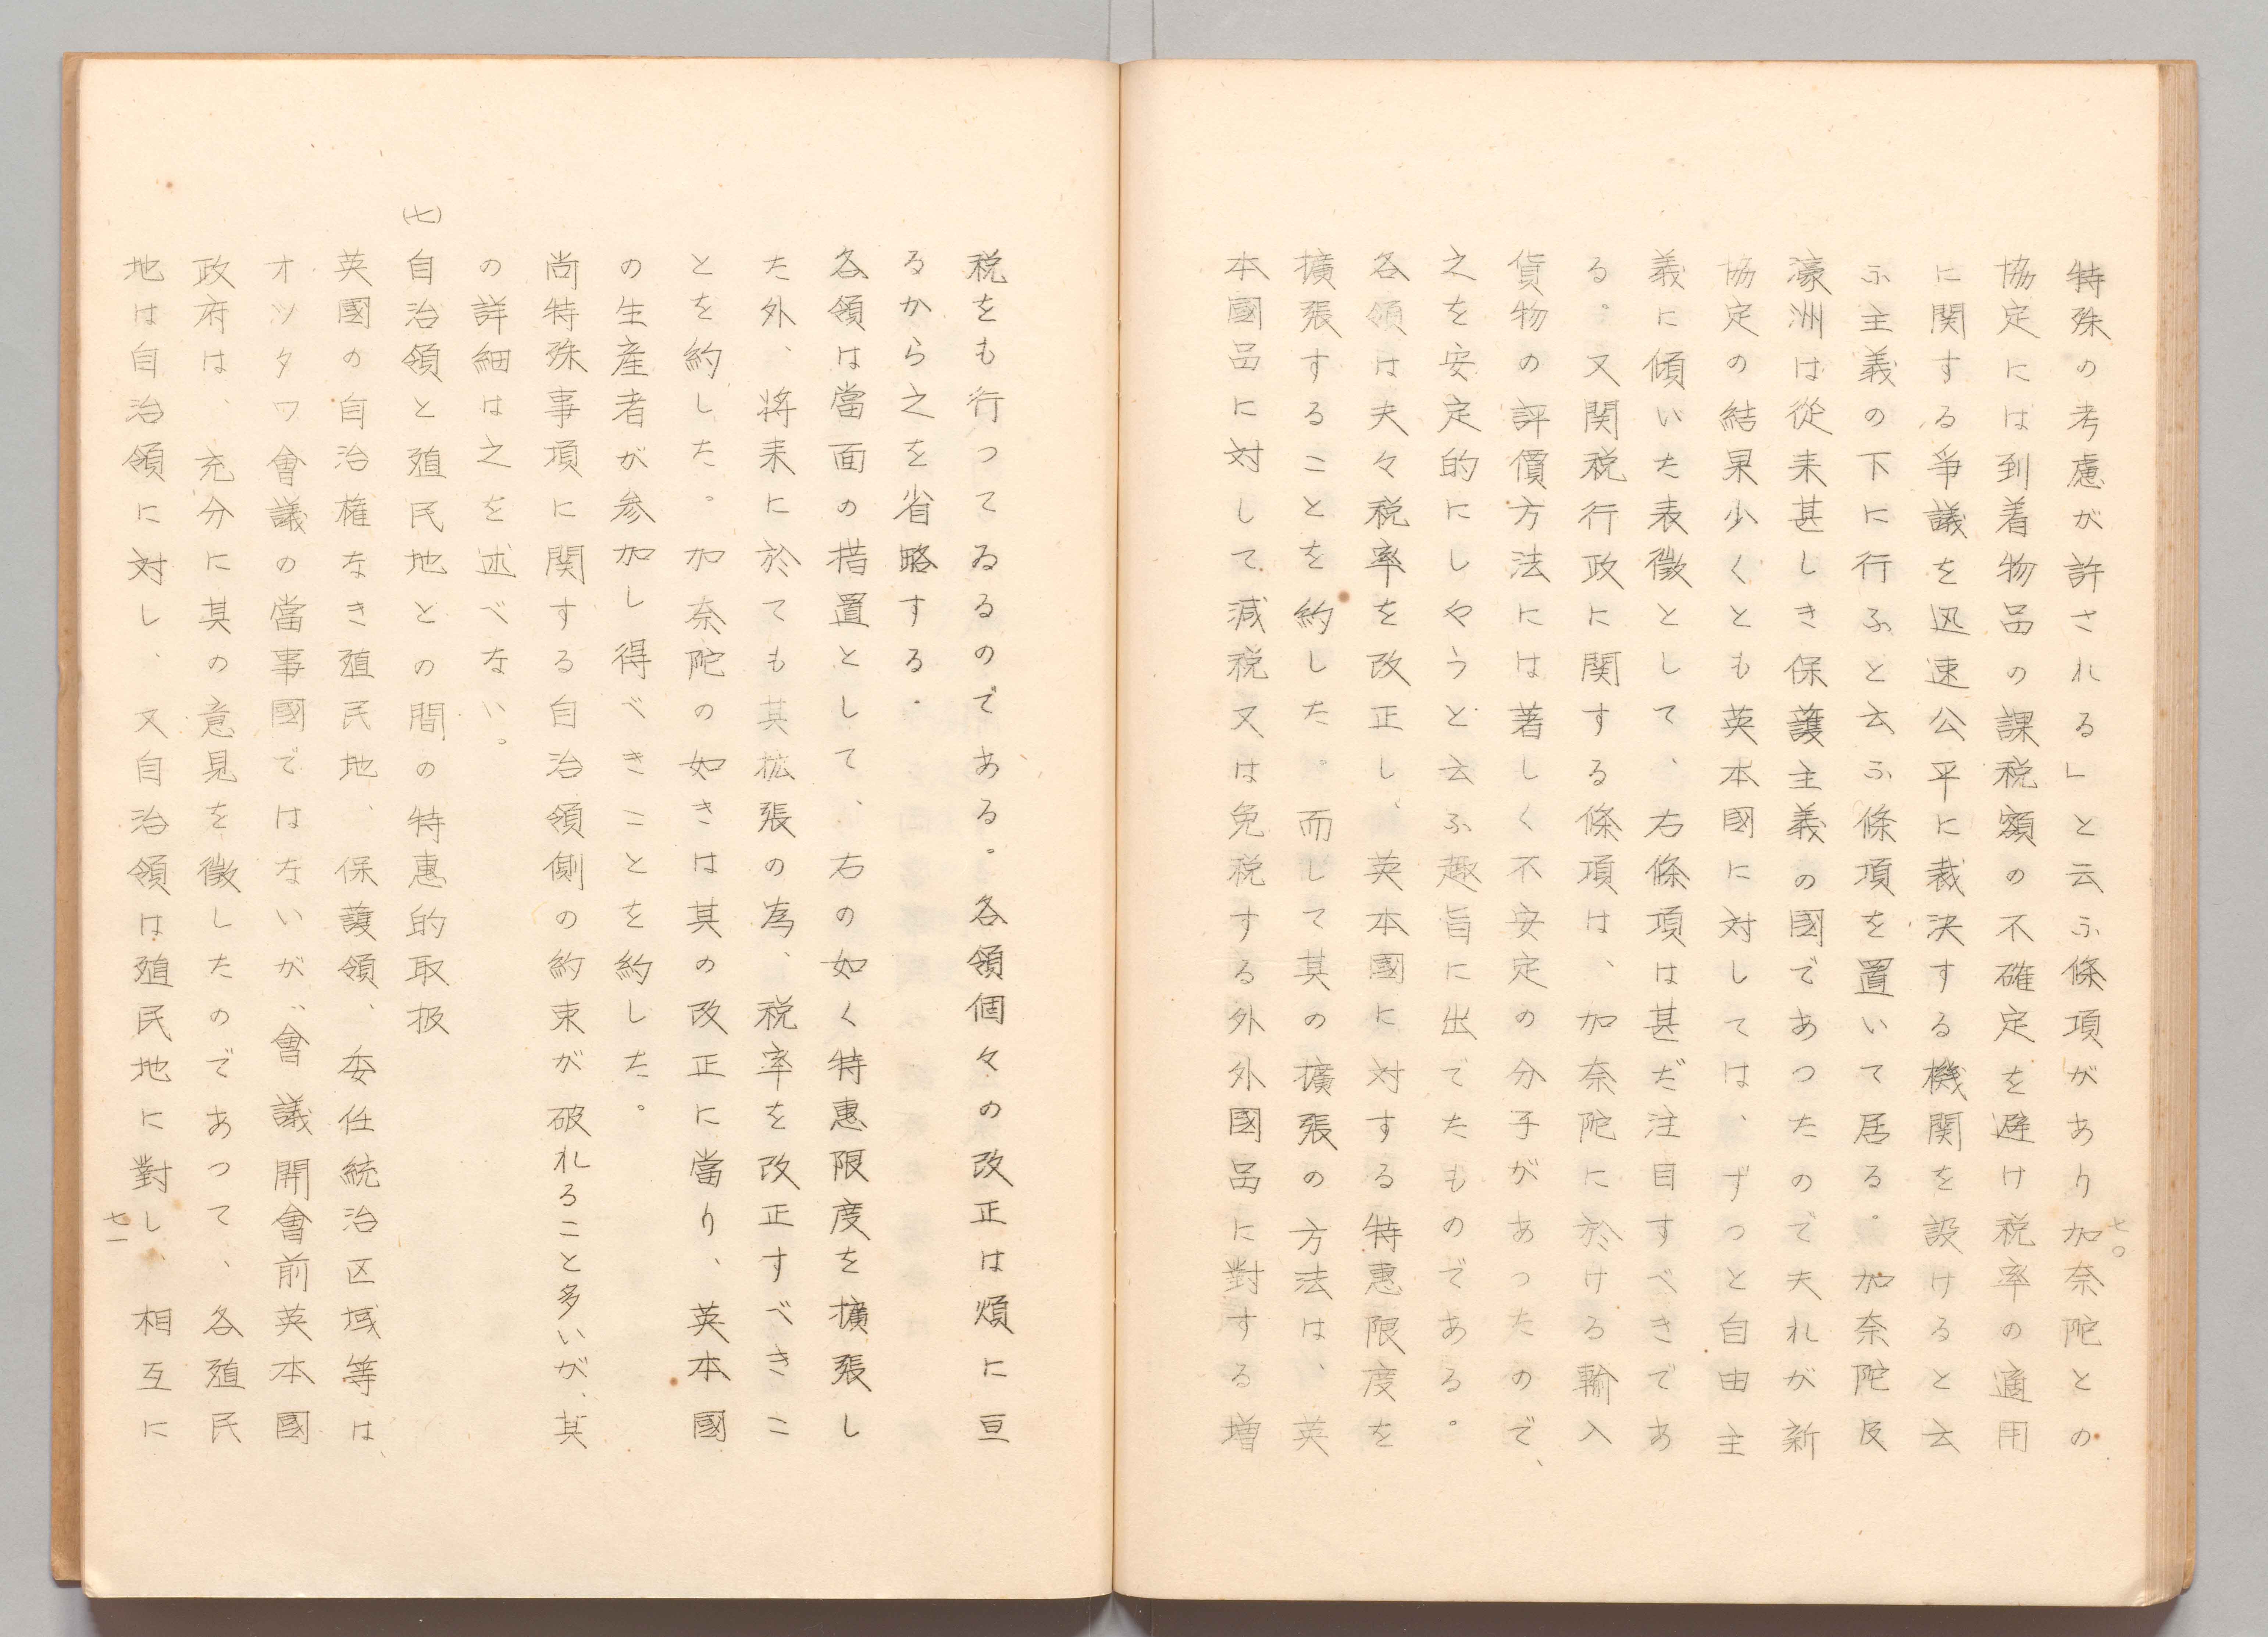 特殊の考慮が許される」と云ふ條項があり加奈陀との
協定には到着物品の課税額の不確定を避け税率の適用
に関する爭議を迅速公平に裁決する機関を設けると云
ふ主義の下に行ふと云ふ條項を置いて居る。加奈陀及
濠洲は從来甚しき保護主義の國であつたので夫れが新
協定の結果少くとも英本國に対しては、ずつと自由主
義に傾いた表徴として、右條項は甚だ注目すべきであ
る。又関税行政に関する條項は、加奈陀に於ける輸入
貨物の評價方法には著しく不安定の分子があつたので、
之を安定的にしやうと云ふ趣旨に出でたものである。
各領は夫々税率を改正し、英本國に対する特惠限度を
擴張することを約した。而して其の擴張の方法は、英
本國品に対して減税又は免税する外外國品に對する増
七〇
税をも行つてゐるのである。各領個々の改正は煩に亘
るから之を省略する.
各領は當面の措置として、右の如く特惠限度を擴張し
た外、将来に於ても其拡張の為、税率を改正すべきこ
とを約した。加奈陀の如きは其の改正に當り、英本國
の生産者が参加し得べきことを約した。
尚特殊事項に関する自治領側の約束が破れること多いが、其
の詳細は之を述べない。
(七)自治領と殖民地との間の特惠的取扱
英國の自治権なき殖民地、保護領、委任統治区域等は、
オツタワ會議の當事國ではないが、會議開會前英本國
政府は、充分に其の意見を徴したのであつて、各殖民
地は自治領に対し、又自治領は殖民地に對し、相互に
七一